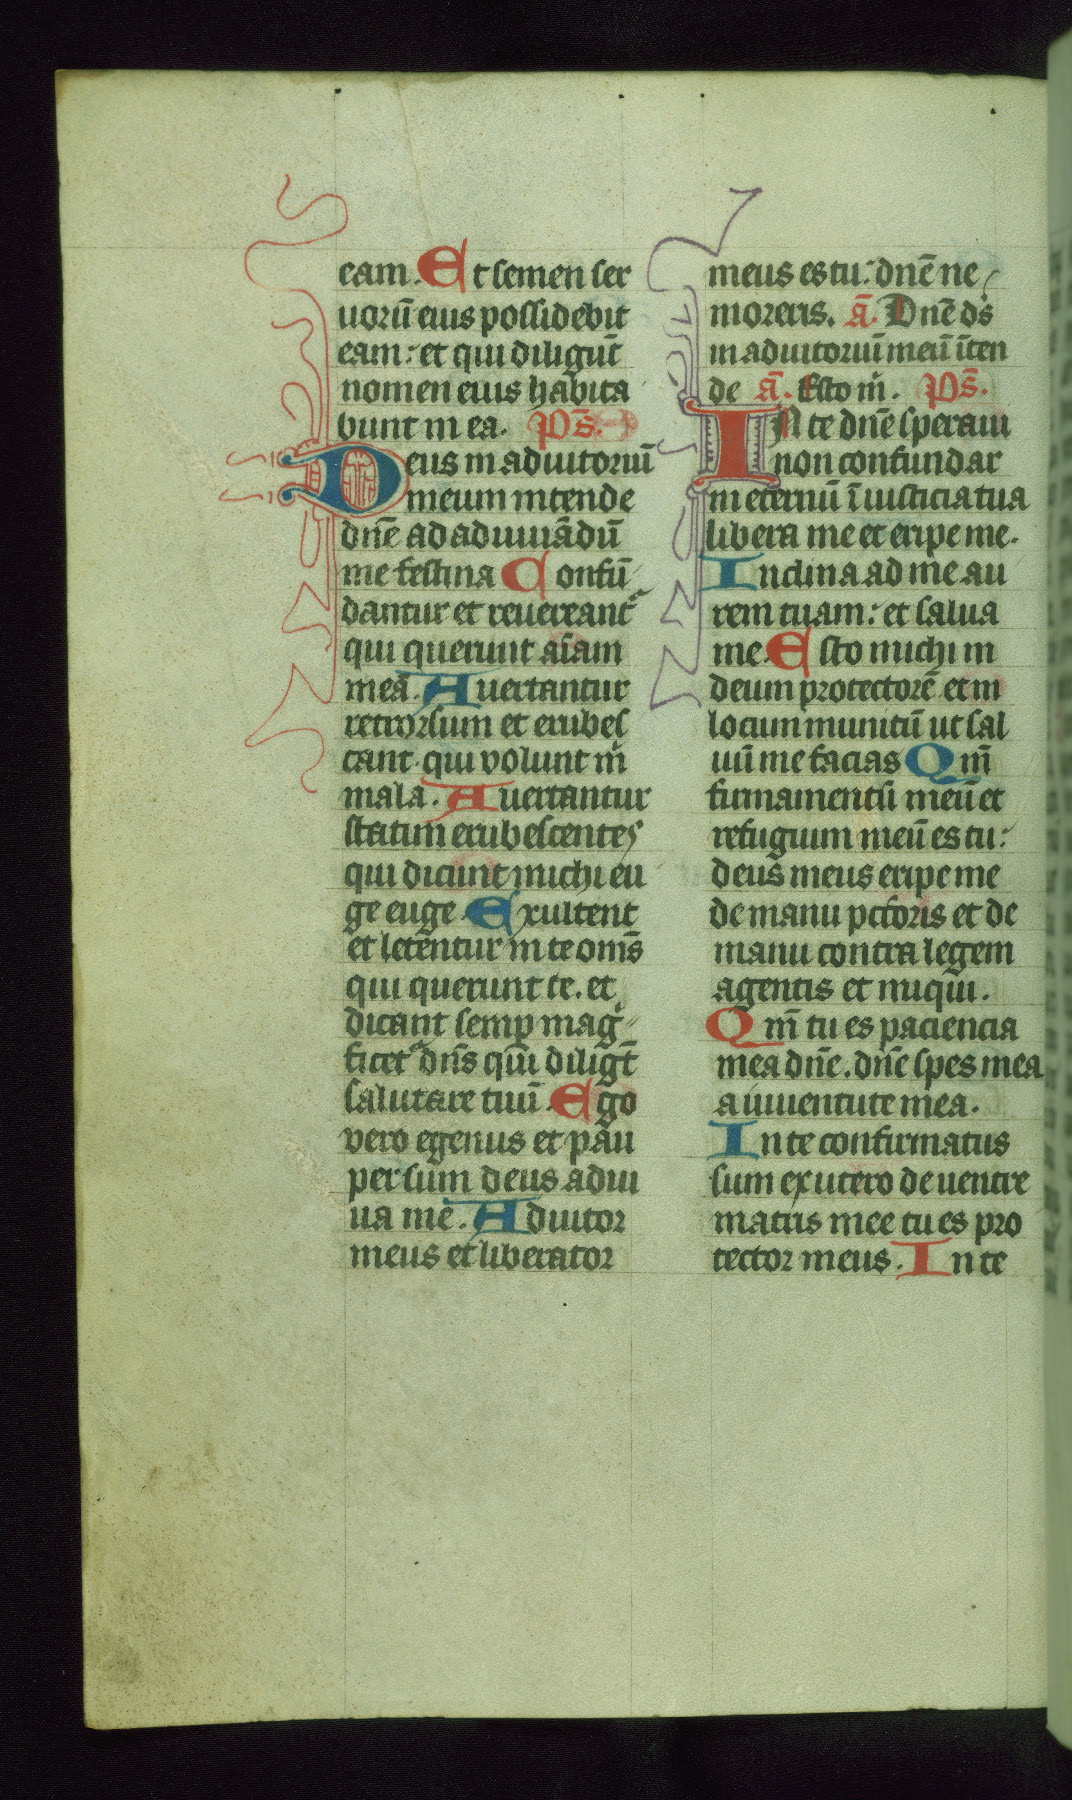 eam. Et semen ser
uorū eius possidebit
eam: et qui diligūt
nomen eius habita
bunt in ea. Ps̄.
Deus in adiutoriū
meum intende
dn̄e ad adiuuādū
me festina Confū
dantur et reuereant᷑
qui querunt aīam
meā. Auertantur
retrorsum et erubes
cant. qui volunt m̄
mala. Auertantur
statim erubescentes
qui dicunt michi eu
ge euge. Exultent
et letentur in te om̄s
qui querunt te. et
dicant semp mag
ficet᷑ dn̄s qui diligt̄
salutare tuū. Ego
vero egenus et pau
per sum deus adiu
ua me. Adiutor
meus et liberator
meus es tu: dn̄e ne
moreris. ā. Dn̄e ds̄
in adiutoriū meū īten
de ā. Esto m̄. Ps̄.
IN te dn̄e speraui
non confundar
in eternū ī iusticia tua
libera me et eripe me.
Inclina ad me au
rem tuam: et salua
me. Esto michi in
deum protectorē et in
locum munitū ut sal
uū me facias Qm̄
firmamentū meū et
refugium meū es tu:
deus meus eripe me
de manu pctoris et de
manu contra legem
agentis et iniqui.
Qm̄ tu es paciencia
mea dn̄e. dn̄e spes mea
a iuuentute mea.
In te confirmatus
sum ex utero de uentre
matris mee tu es pro
tector meus. In te